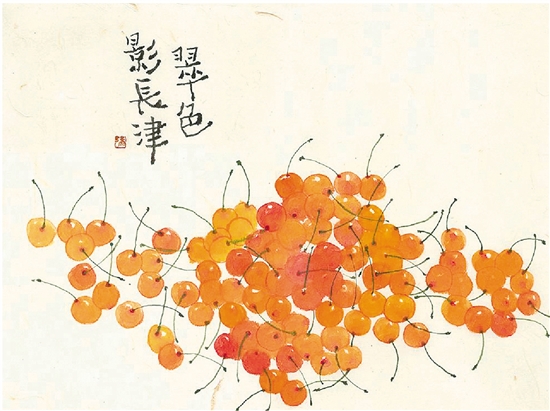 翠色
影長津